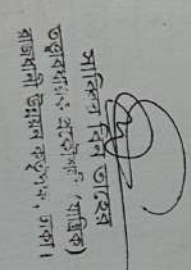 সাকিল বিন তাহের
তত্ত্বাবধায়ক প্রকৌশলী (যান্ত্রিক)
রাজধানী উন্নয়ন কর্তৃপক্ষ, ঢাকা।